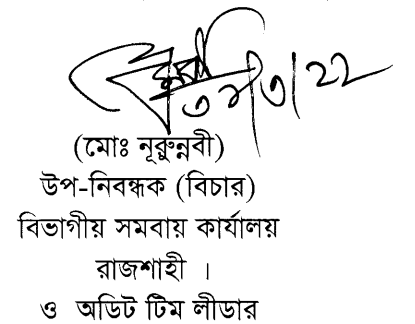 (মোঃ নূরুন্নবী)
উপ-নিবন্ধক (বিচার)
বিভাগীয় সমবায় কার্যালয়
রাজশাহী ।
ও অডিট টিম লীডার